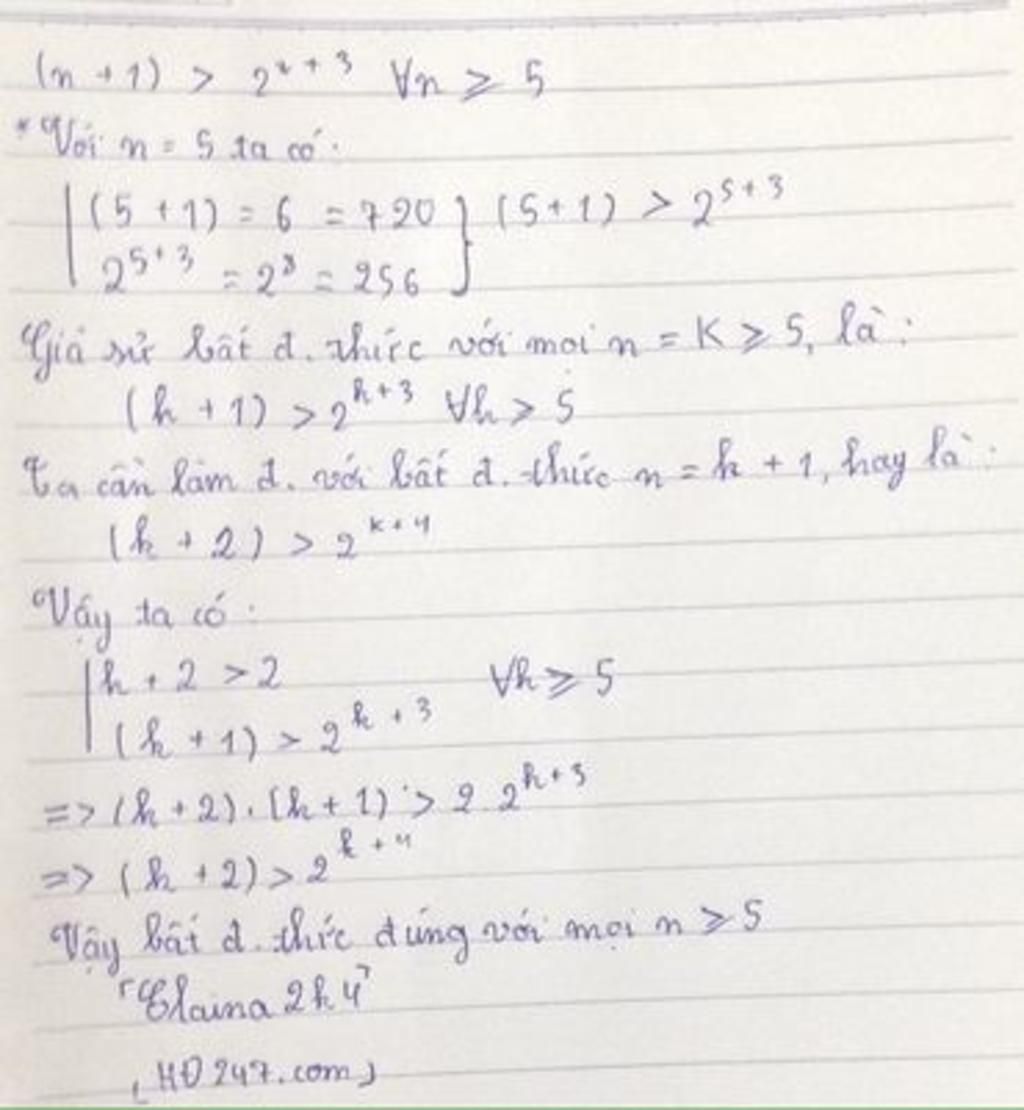 (n + 1) > 2^{n + 3} ∀n ⩾ 5
* Với n = 5 ta có:
(5 + 1) = 6 = 720 } (5+1) > 2^{5+3}
2^{5+3} = 2^8 = 256
Giả sử bất đ. thức với mọi n = K ⩾ 5, là:
(k + 1) > 2^{k+3} ∀k ⩾ 5
Ta cần làm đ. với bất đ. thức n = k + 1, hay là:
(k + 2) > 2^{k+4}
Vậy ta có:
k + 2 > 2 ∀k ⩾ 5
(k + 1) > 2^{k + 3}
=> (k + 2). (k + 1) > 2.2^{k+3}
=> (k + 2) > 2^{k+4}
Vậy bất đ. thức đúng với mọi n ⩾ 5
「Elaina 2k4」
[HĐ247.com]